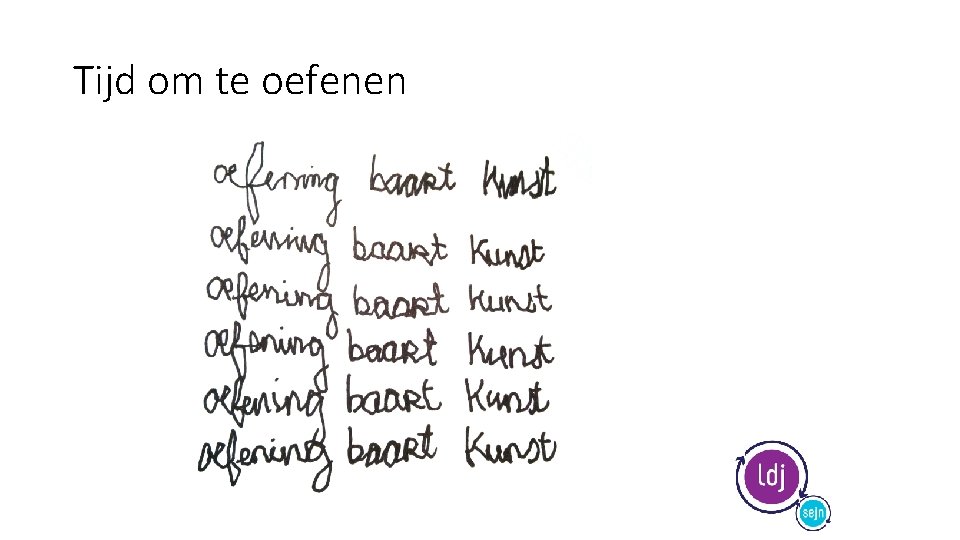 Tijd om te oefenen
oefening baart kunst
oefening baart kunst
oefening baart kunst
oefening baart kunst
oefening baart kunst
oefening baart kunst
ldj
sejn